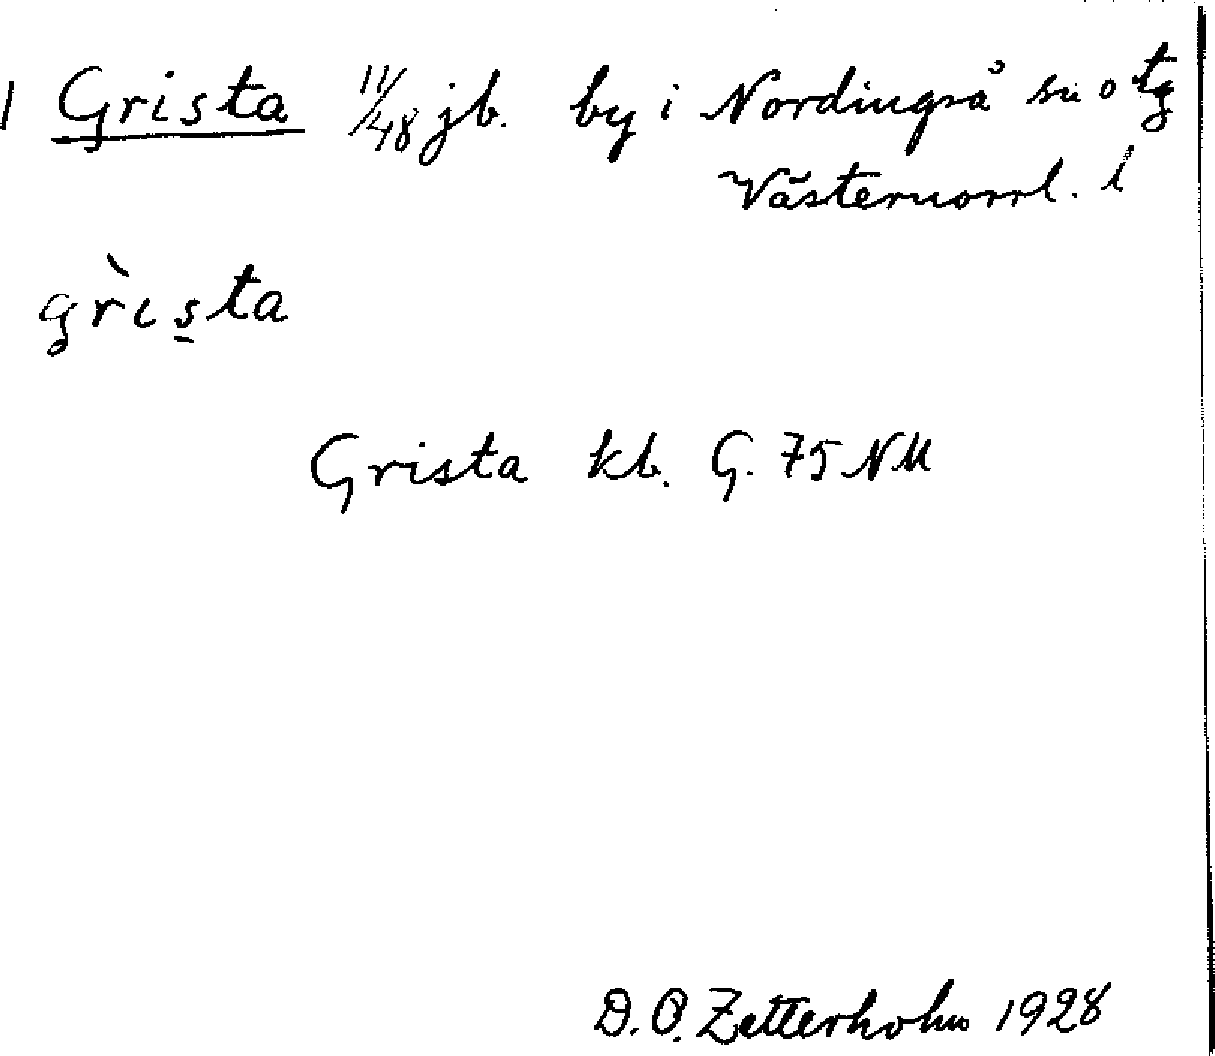 1 Grista 11/48 jb. by i Nordingrå sn o tg
Västernorrl. l
grìs̱ta
Grista kb. G. 75 NM
D. O. Zetterholm 1928